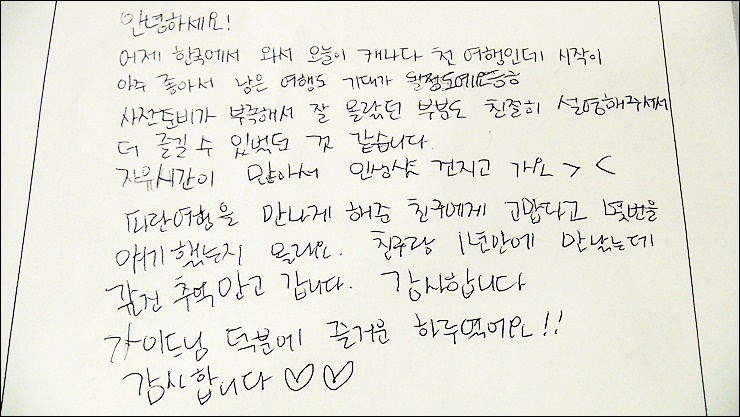 안녕하세요!
어제 한국에서 와서 오늘이 캐나다 첫 여행인데 시작이
아주 좋아서 남은 여행도 기대가
사전준비가 부족해서 잘 몰랐던 부분도 친절히 설명해주셔서
더 즐길 수 있었던 것 같습니다.
자유시간이 많아서 인생샷 건지고 가요 > <
파란여행을 만나게 해준 친구에게 고맙다고 몇번을
얘기했는지 몰라요. 친구랑 1년만에 만났는데
값진 추억 안고 갑니다. 감사합니다
가이드님 덕분에 즐거운 하루였어요!!
감사합니다 ♡♡